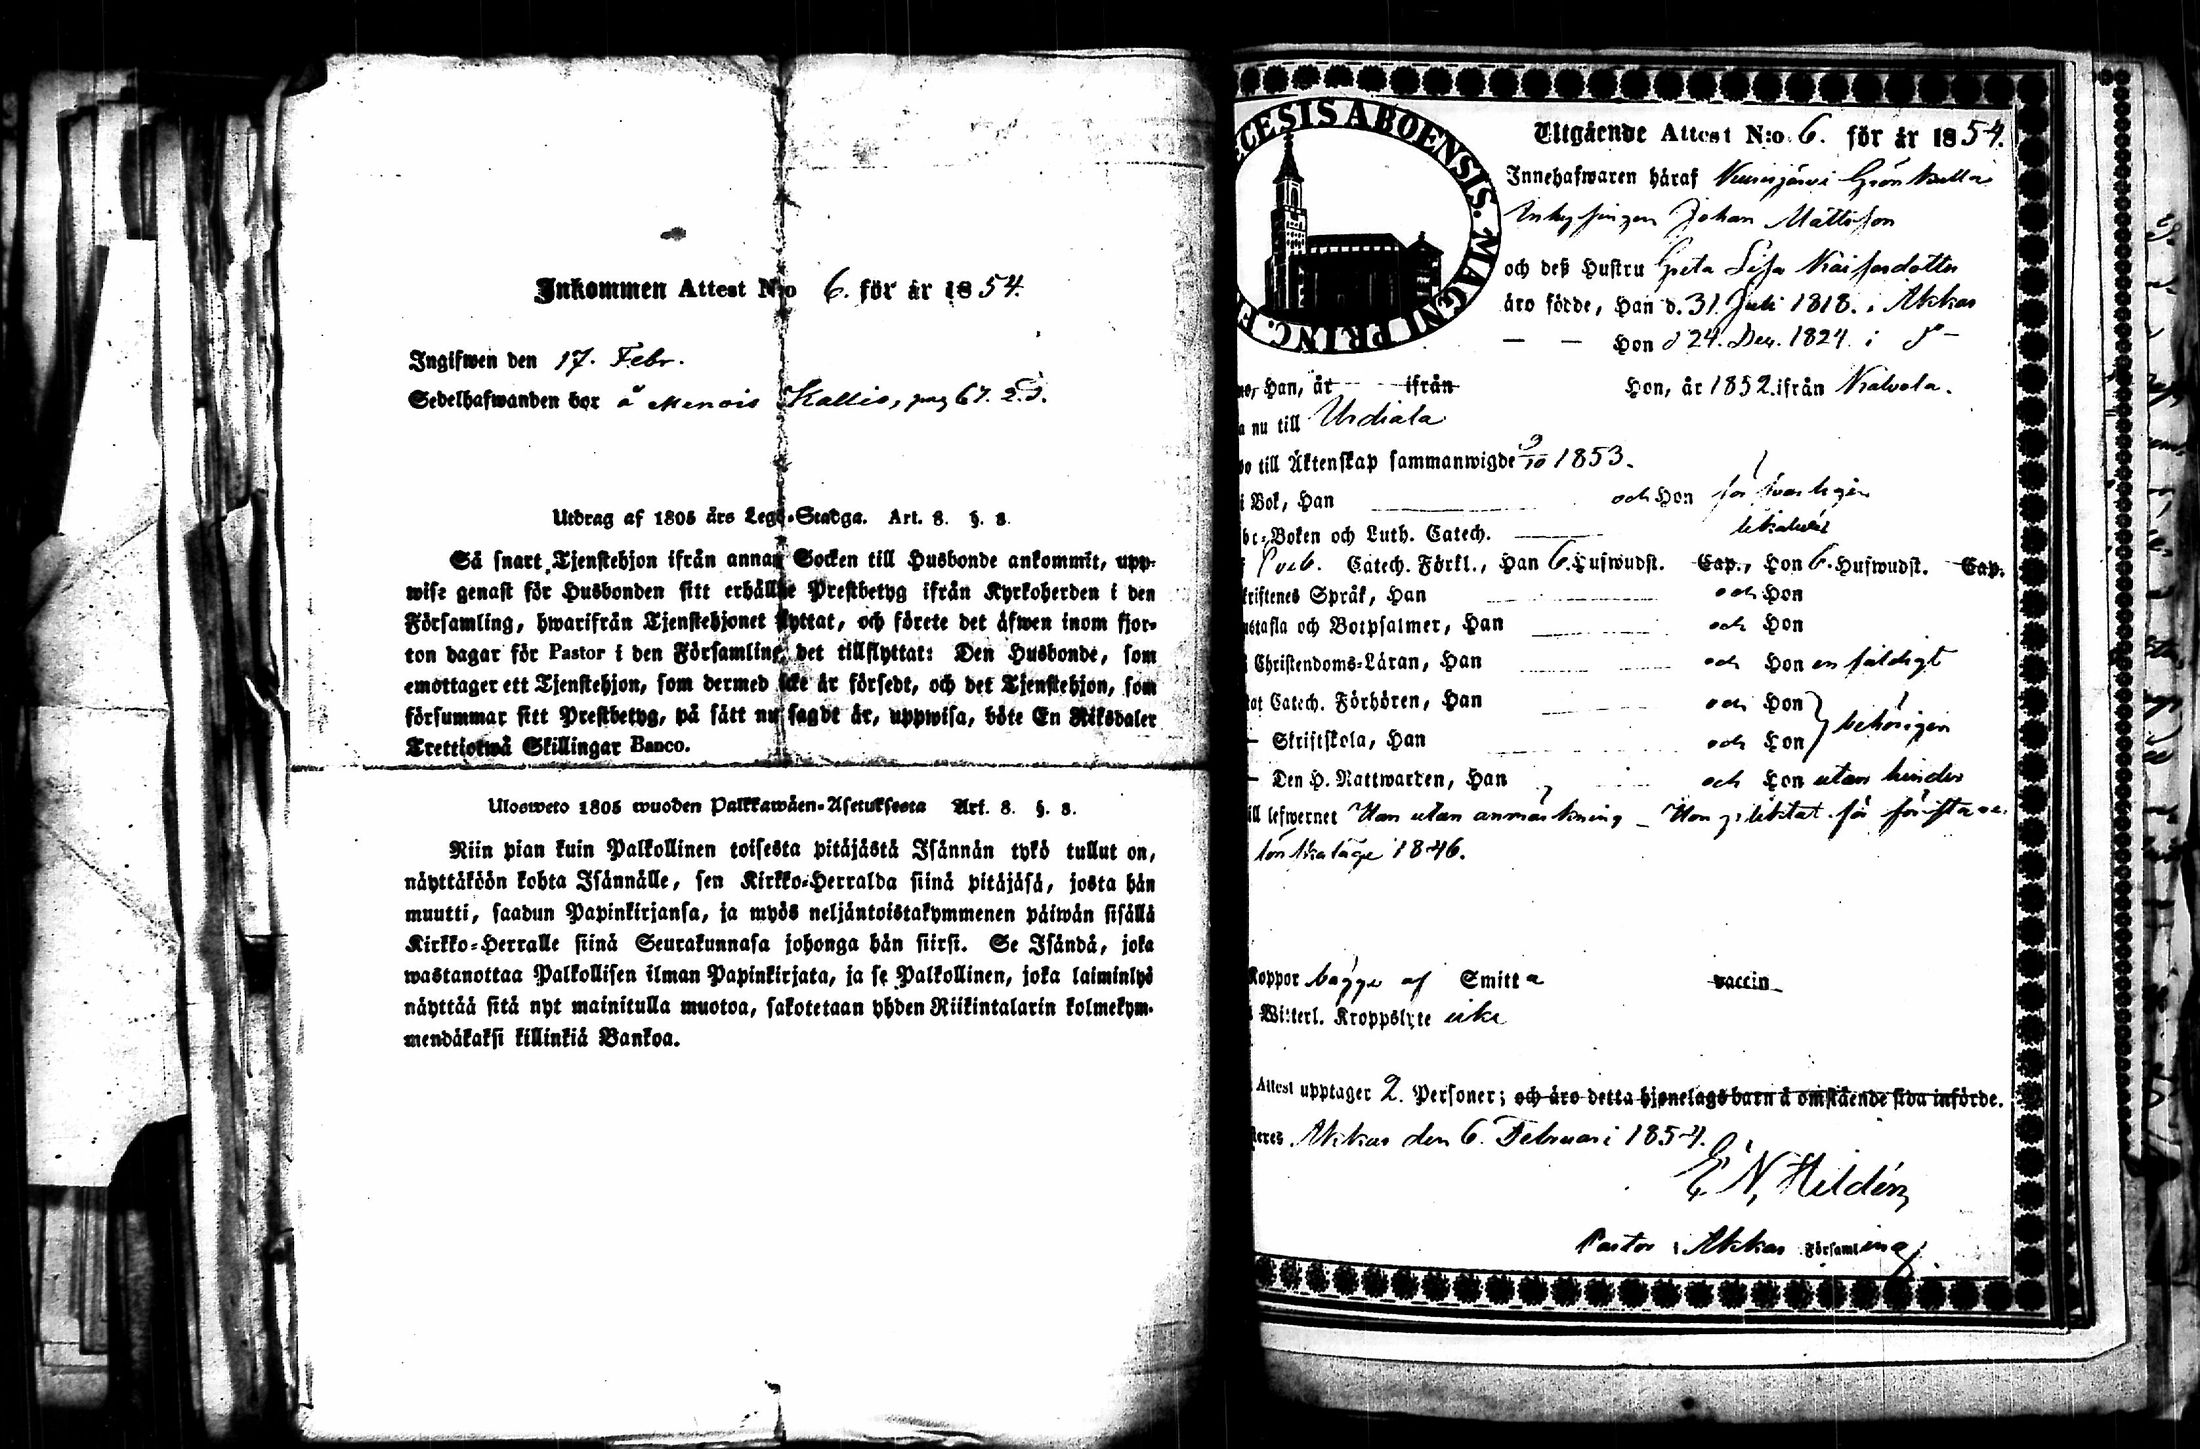 Inkommen Attest N:o 6. för år 1854.
Ingifwen den 17. Febr.
Sedelhafwanden bor å Menois Kallio, pag 67. 2. D.
Utdrag af 1805 års Lego-Stadga. Art. 8. §. 8.
Så snart Tjenstehjon ifrån annan Socken till Husbonde ankommit, upp-
wise genast för Husbonden sitt erhållne Prestbetyg ifrån Kyrkoherden i den
Församling, hwarifrån Tjenstehjonet flyttat, och förete det äfwen inom fjor-
ton dagar för Pastor i den Församling, det tillflyttat: Den Husbonde, som
emottager ett Tjenstehjon, som dermed icke är försedt, och det Tjenstehjon, som
försummar sitt Prestbetyg, på sätt nu sagdt är, uppwisa, böte En Riksdaler
Trettiotwå Skillingar Banco.
Ulosweto 1805 wuoden Palkkawäen-Asetuksesta Art. 8. §. 8.
Niin pian kuin Palkollinen toisesta pitäjästä Isännän tykö tullut on,
näyttäköön kohta Isännälle, sen Kirkko-Herralda siinä pitäjäsä, josta hän
muutti, saadun Papinkirjansa, ja myös neljäntoistakymmenen päiwän sisällä
Kirkko-Herralle siinä Seurakunnasa johonga hän siirsi. Se Isändä, joka
wastanottaa Palkollisen ilman Papinkirjata, ja se Palkollinen, joka laiminlyö
näyttää sitä nyt mainitulla muotoa, sakotetaan yhden Riikintalarin kolmekym-
mendäkaksi killinkiä Bankoa.
CESIS ABOENSIS. MAGNI PRINC. F
Utgående Attest N:o 6. för år 1854.
Innehafwaren häraf
Inhysingen Johan Mattsson
och deß Hustru Greta Lisa Kaisardotter
äro födde, Han d. 31. Juli 1818. i Akkas
— — Hon d 24. Dec. 1824. i d:o –
Han, år ifrån Hon, år 1852. ifrån Kalvola.
a nu till Urdiala
till Äktenskap sammanwigde 9/10 1853.
i Bok, Han och Hon försvarligen
Boken och Luth. Catech. likaledes
Catech. Förkl., Han 6. Hufwudst. Cap., Hon 6. Hufwudst. Cap.
kriftenes Språk, Han och Hon
ustafla och Botpsalmer, Han och Hon
Christendoms-Läran, Han och Hon enfaldigt
Catech. Förhören, Han och Hon
— Skriftskola, Han och Hon behörigen
— Den H. Nattwarden, Han och Hon utan hinder
ill lefwernet Han utan anmärkning – Hon pliktat för första
lönskaläge 1846.
Koppor bägge af Smitta vaccin
Witterl. Kroppslyte icke
Attest upptager 2. Personer; och äro detta hjonelags barn å omstående sida införde.
teres Akkas den 6. Februari 1854.
E N Hildén
Pastor i Akkas Församling